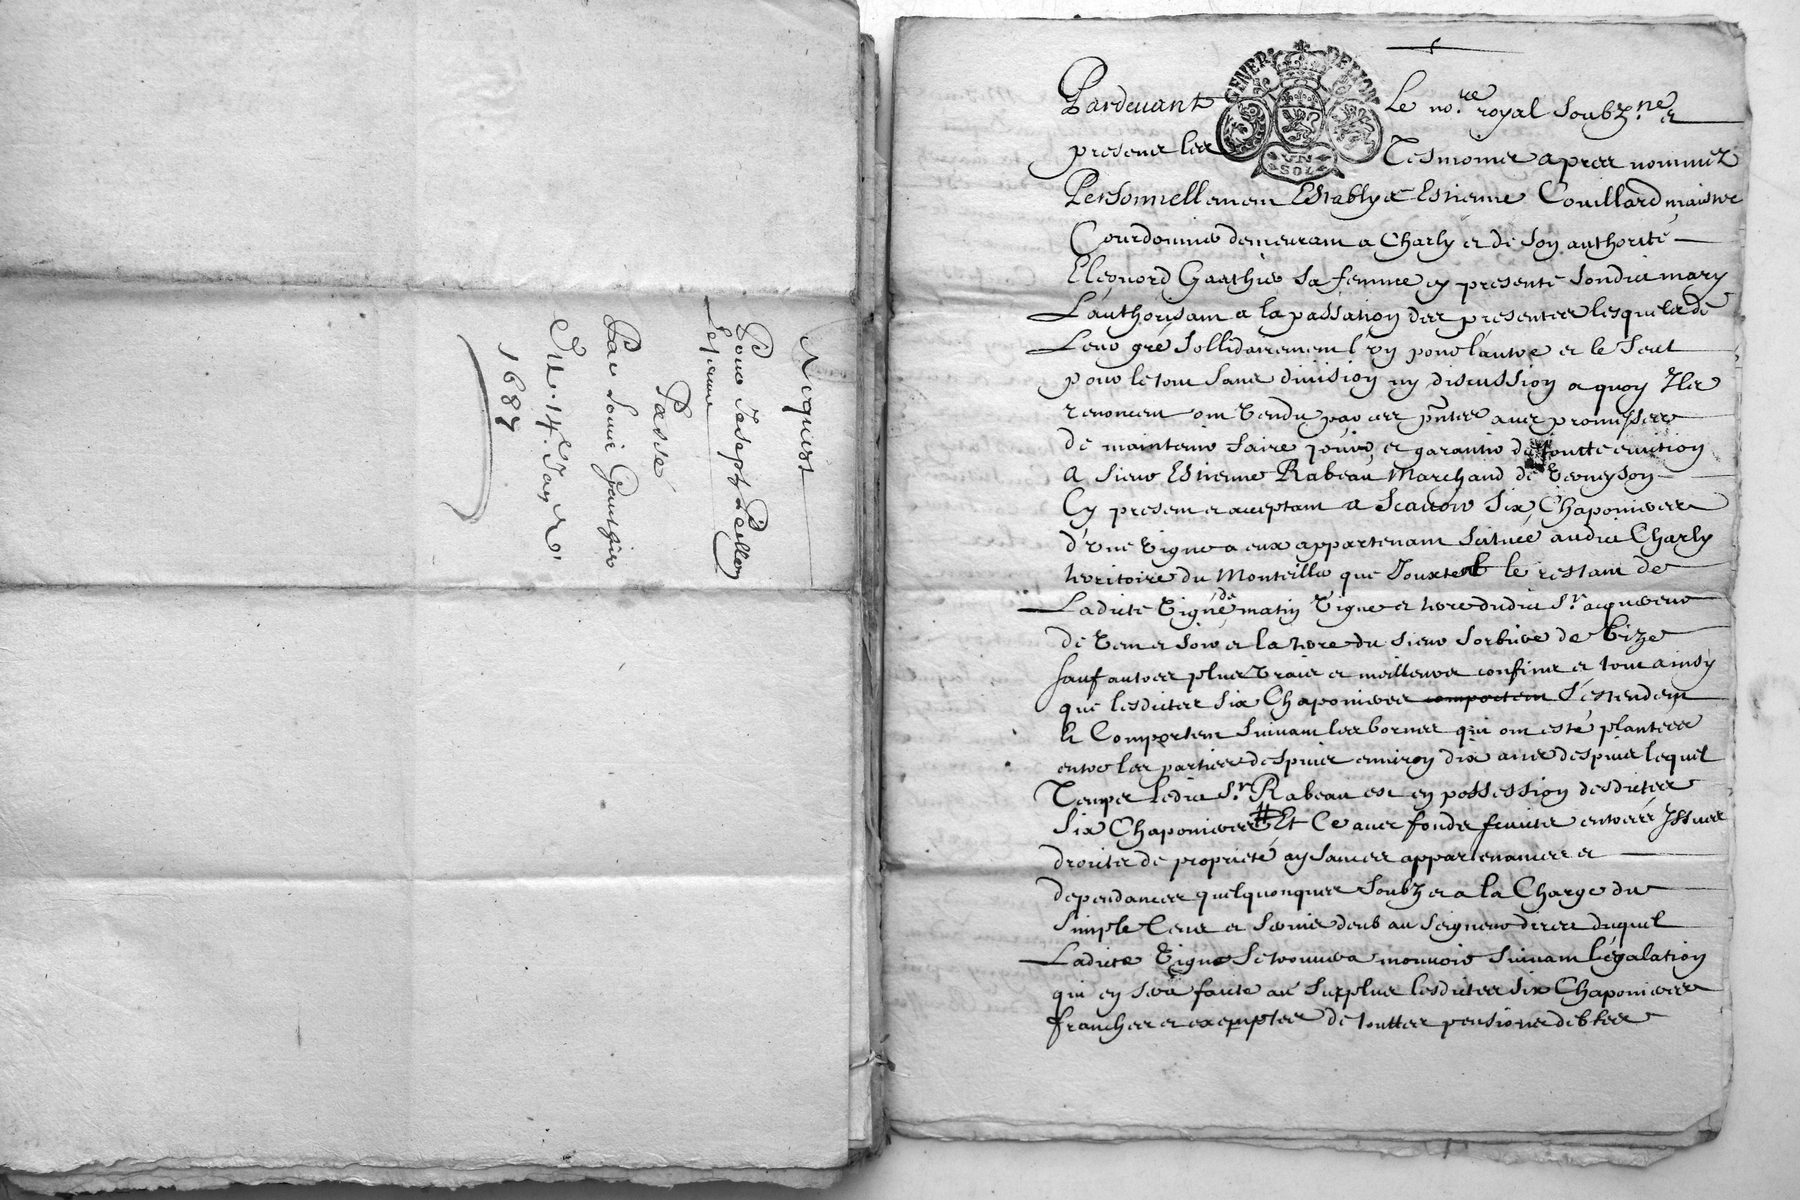 Acquist
Pour Joseph Pellon
et femme
Passé
Par Louis Gauthier
Du 14e Janer
1687
GENERA DE LION
VN
SOL
Pardeuant Le nore royal soubzne et
presence les Tesmoins apres nommez
Personnellement Establys Estienne Couillard maistre
Courdonnier demeurant a Charly et de son authorité
Eleonord Gauthier sa femme cy presente sondict mary
L'authorisant a la passation des presentes lesquels de
Leur gré sollidairement l'vn pour l'autre et le seul
pour le tout sans diuision ny discussion a quoy Ils
renoncent ont vendu par ces pntes auec promisses
de maintenir faire jouir et garantir de toutte euiction
A sieur Estienne Rabeau Marchand de Verneyson
Cy present et acceptant a Scauoir six Chaponieres
d'vne vigne a eux appartenant scituée audict Charly
territoire du Monteillier que Jouxte le restant de
Ladicte vigne de matin vigne et terre dudict Sr acquereur
de vent et soir et la terre du sieur de bize
sauf autres plus vrais et meilleurs confins et tout ainsy
que lesdictes six Chaponieres comportent s'estendent
et Comportent suiuant les bornes qui ont esté plantées
entre les parties despuis enuiron dix ans despuis lequel
Temps Ledict Sr Rabeau est en possession desdictes
six Chaponieres Et Ce auec fonds fruicts entrées Issues
droicts de proprieté aysances appartenances et
dependances quelquonques soubz et a la Charge du
simple Cens et seruis deub au seigneur direct duquel
Ladicte vigne se trouuera mouuoir suiuant l'égalation
qui en sera faicte au surplus lesdictes six Chaponieres
franches et exemptes de touttes pensions debtes